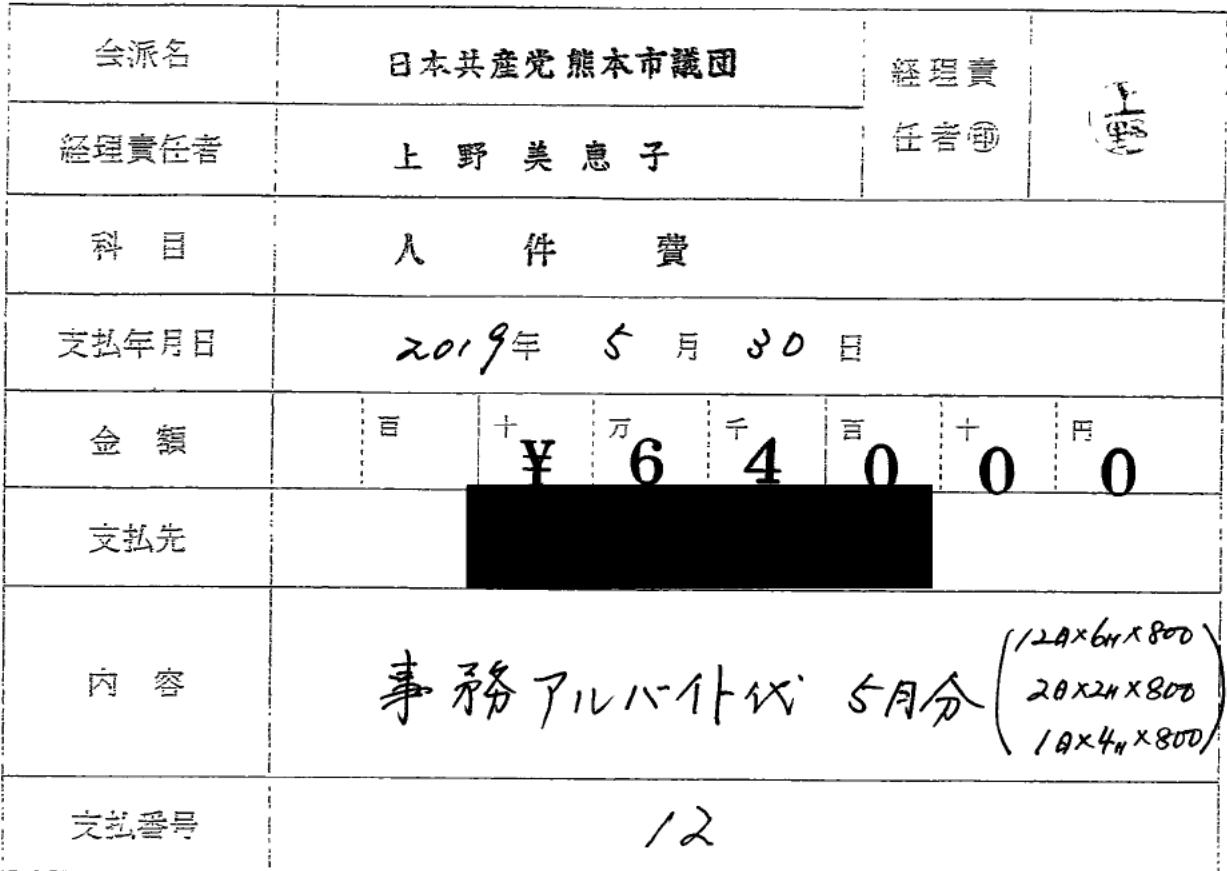 会派名 日本共産党熊本市議団 経理責任者㊞ 上野
経理責任者 上野美恵子
科目 人件費
支払年月日 2019年 5月 30日
金額 百 十 万 千 百 十 円
¥64000
支払先
内容 事務アルバイト代 5月分
(12日×6H×800
2日×2H×800
1日×4H×800)
支払番号 12